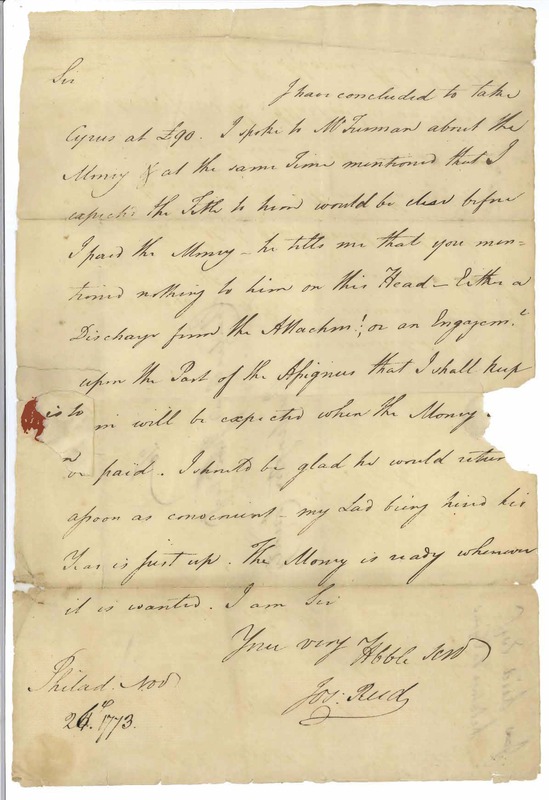 Sir
I have concluded to take
Cyrus at £90. I spoke to Mr Furman about the
Money & at the same Time mentioned that I
expected the Title to him would be clear before
I paid the Money – he tells me that you men=
tioned nothing to him on this Head – Either a
Discharge from the Attachmt, or an Engagemt
upon the Part of the Assignees that I shall keep
is to
him will be expected when the Money
paid. I should be glad he would return
assoon as convenient – my Lad being hired his
Year is just up. The Money is ready whenever
it is wanted. I am Sir
Your very Hbble Servt
Jos: Reed
Philad. Novr
26th 1773.